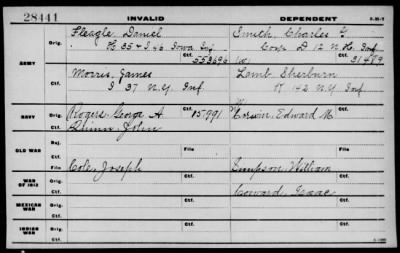 28441 INVALID DEPENDENT
Fleagle, Daniel Smith, Charles G.
ARMY Orig. H 35 & I 46 Iowa Inf Corp D 12 N.H. Inf
Ctf. 553696 31489
Morris, James Lamb Sherburn
Orig. I 37 N.Y. Inf. K 142 N.Y. Inf
Ctf.
NAVY Orig. Rogers, George A. 15791 Erwin, Edward M.
Ctf. Quinn, John
OLD WAR Rej.
Ctf. File File
WAR OF 1812 Orig. Cole, Joseph Simpson, William
Ctf. Coward, Isaac
MEXICAN WAR Orig.
Ctf.
INDIAN WAR Orig.
Ctf.